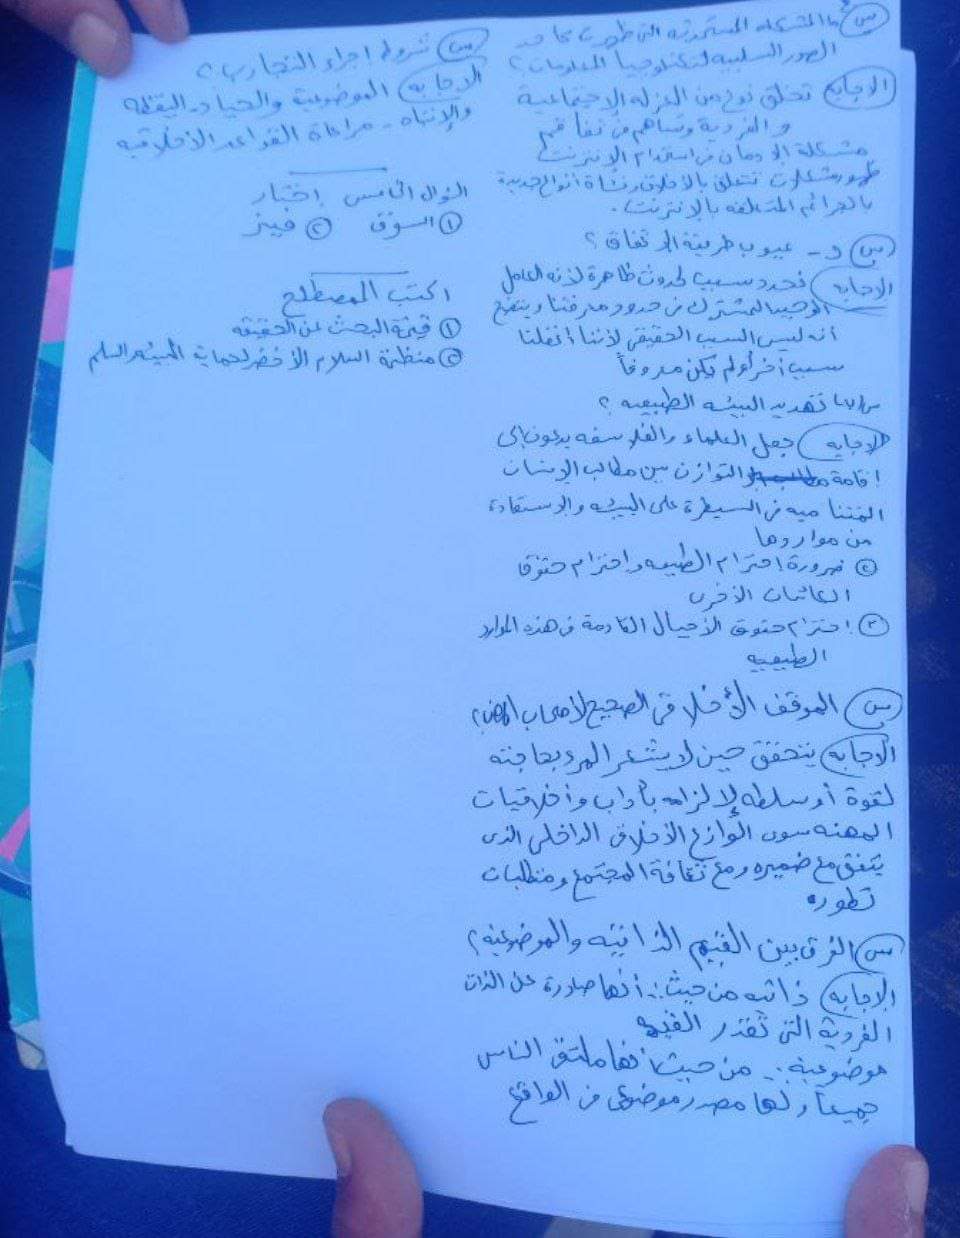 س) ما المشكله المستحدثه التى ظهرت كأحد
الصور السلبيه لتكنولوجيا المعلومات؟
الاجابه) تخلق نوع من العزله الاجتماعية
والفردية وتساهم فى تفاقم
مشكلة الادمان فى استخدام الإنترنت
ظهور مشكلات تتعلق بالأخلاق ونشأة انواع جديدة
بالجرائم المتعلقه بالإنترنت.
س) د - عيوب طريقة الاتفاق؟
الاجابه) نحدد سبب لحدوث ظاهرة لأنه العامل
الوحيد المشترك فى حدود معرفتنا ويتضح
أنه ليس السبب الحقيقى لأننا أغفلنا
سبب آخر أو لم يكن معروفاً
س) تهديد البيئه الطبيعيه؟
الاجابه) جعل العلماء والفلاسفه يدعون إلى
إقامة التوازن بين مطالب الإنسان
المتناميه فى السيطرة على البيئه والاستفادة
من مواردها
٢) ضرورة احترام الطبيعه واحترام حقوق
الكائنات الأخرى
٣) احترام حقوق الأجيال القادمة فى هذه الموارد
الطبيعيه
س) الموقف الأخلاقى الصحيح لأصحاب المهن؟
الاجابه) يتحقق حين لا يشعر المرء بحاجته
لقوة أو سلطه لإلزامه بآداب وأخلاقيات
المهنه سوى الوازع الأخلاقى الداخلى الذى
يتفق مع ضميره ومع ثقافة المجتمع ومتطلبات
تطوره
س) الفرق بين القيم الذاتيه والموضوعيه؟
الاجابه) ذاتيه من حيث: أنها صادرة عن الذات
الفردية التى تقدر القيمه
موضوعيه: من حيث أنها ملتقى الناس
جميعاً ولها مصدر موضوعى فى الواقع
س) شروط اجراء التجارب؟
الاجابه) الموضوعية والحياد - اليقظه
والإنتباه - مراعاة القواعد الأخلاقيه
السؤال الخامس إختار
١) السوق ٢) فينر
اكتب المصطلح
١) قيمة البحث عن الحقيقه
٢) منظمة السلام الأخضر لحماية البيئه والسلم